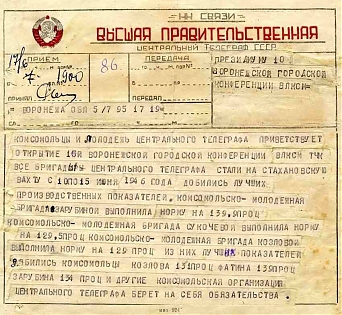 НК СВЯЗИ
ВЫСШАЯ ПРАВИТЕЛЬСТВЕННАЯ
ЦЕНТРАЛЬНЫЙ ТЕЛЕГРАФ СССР
ПРИЕМ
ПЕРЕДАЧА
86
1900
Принял
ПРЕЗИДИУМУ 10
ВОРОНЕЖСКОЙ ГОРОДСКОЙ
КОНФЕРЕНЦИИ ВЛКСМ
ВОРОНЕЖА ОБЛ 5/7 95 17 19
КОМСОМОЛЬЦЫ И МОЛОДЕЖЬ ЦЕНТРАЛЬНОГО ТЕЛЕГРАФА ПРИВЕТСТВУЕТ
ОТКРЫТИЕ 10Й ВОРОНЕЖСКОЙ ГОРОДСКОЙ КОНФЕРЕНЦИИ ВЛКСМ ТЧК
ВСЕ БРИГАДЫ ЦЕНТРАЛЬНОГО ТЕЛЕГРАФА СТАЛИ НА СТАХАНОВСКУЮ
ВАХТУ С 10 ПО 15 ИЮНЯ 1946 ГОДА ДОБИЛИСЬ ЛУЧШИХ
ПРОИЗВОДСТВЕННЫХ ПОКАЗАТЕЛЕЙ, КОМСОМОЛЬСКО-МОЛОДЕЖНАЯ
БРИГАДА ЗАРУБИНОЙ ВЫПОЛНИЛА НОРМУ НА 139,9 ПРОЦ
КОМСОМОЛЬСКО-МОЛОДЕЖНАЯ БРИГАДА СУКОЧЕВОЙ ВЫПОЛНИЛА НОРМУ
НА 129,5 ПРОЦ КОМСОМОЛЬСКО-МОЛОДЕЖНАЯ БРИГАДА КОЗЛОВОЙ
ВЫПОЛНИЛА НОРМУ НА 129 ПРОЦ ИЗ НИХ ЛУЧШИХ ПОКАЗАТЕЛЕЙ
ДОБИЛИСЬ КОМСОМОЛЬЦЫ КОЗЛОВА 131 ПРОЦ ФАТИНА 139 ПРОЦ
ЗАРУБИНА 134 ПРОЦ И ДРУГИЕ КОМСОМОЛЬСКАЯ ОРГАНИЗАЦИЯ
ЦЕНТРАЛЬНОГО ТЕЛЕГРАФА БЕРЕТ НА СЕБЯ ОБЯЗАТЕЛЬСТВА